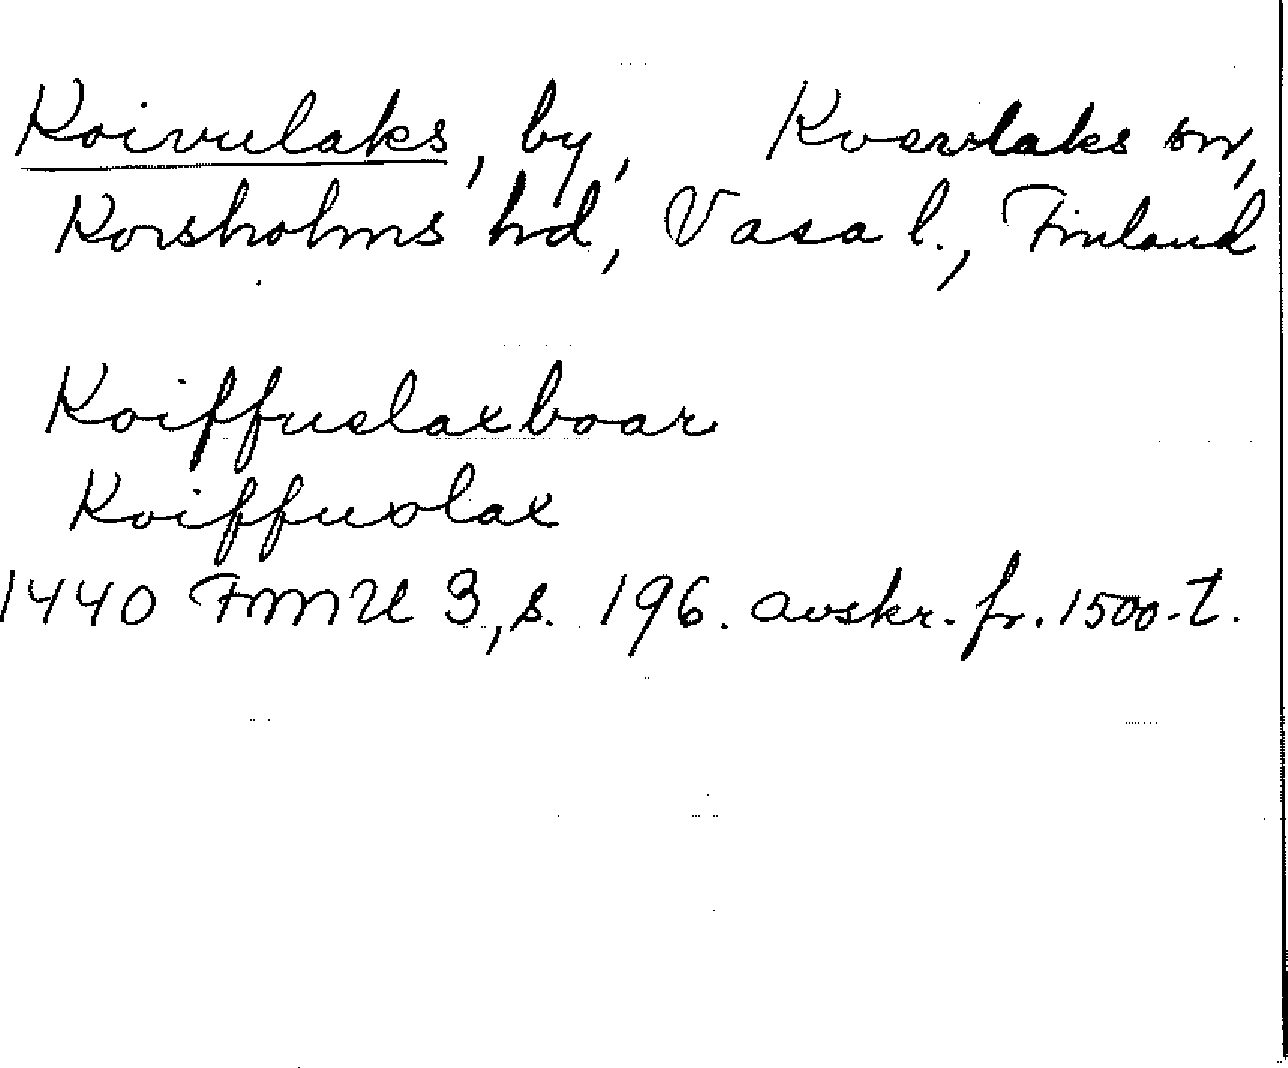 Koivulaks, by, Kvevlaks sn,
Korsholms hd, Vasa l., Finland
Koiffuelaxboar
Koiffuolax
1440 FMU 3, s. 196. avskr. fr. 1500-t.